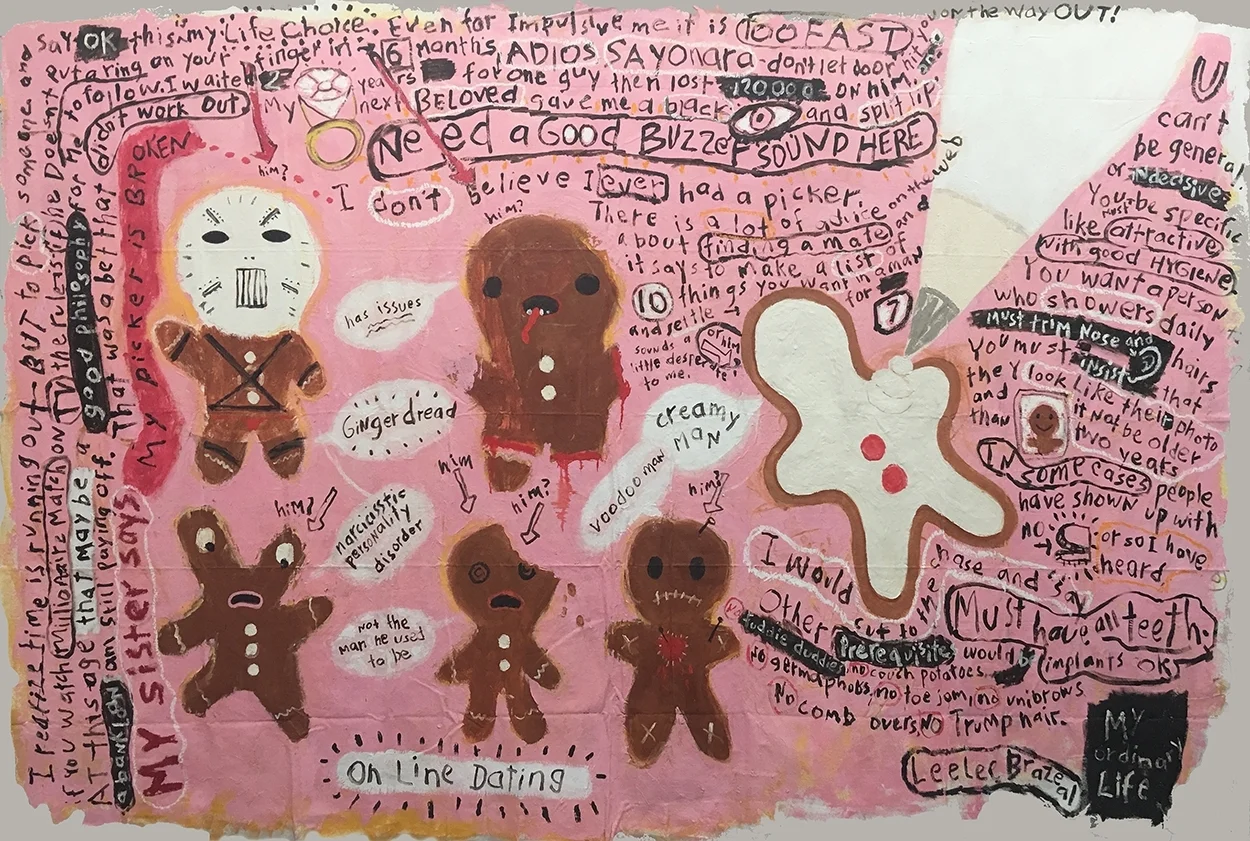 I realize time is running out - BUT to pick someone and say OK this is my Life Choice. Even for Impulsive me it is TOO FAST
If you watch Millionaire Match on TV the rule is
put a ring on your finger in 6 months, ADIOS SAYonara - don't let door hit you on the way OUT!
AT this age that may be a good philosophy for Me to follow. I waited 2 years for one guy then lost 120,000 on him and
a bank loan am still paying off. That was a bet that didn't work out
My next BELOVED gave me a black and split lip
Need a Good BUZZer SOUND HERE
MY sister says My picker is BROKEN
I don't believe I ever had a picker.
There is a lot of advice on the web
about finding a mate and
it says to make a list of
10 things you want in a man
and settle for 7
sounds a little desperate
to me.
or him
him?
him?
has issues
Ginger dread
narcissistic
personality
disorder
Not the
man he used
to be
creamy
MAN
voodoo man
him?
him
him?
him?
On Line Dating
U
can't
be general
or indecisive
You must be specific
like attractive
with good HYGIENE
You want a person
who showers daily
Must trim Nose and hairs
You must insist that
they look like their photo
and it not be older
than two years
IN some cases people
have shown up with
no
or so I have
heard
I would cut to the chase and say
Must have all teeth.
implants OK
Other Prerequisites would be
No fuddie duddies, no couch potatoes
no germaphobs, no toe jam, no unibrows
No comb overs, NO Trump hair.
LeeLee Brazeal
MY
ordinary
Life